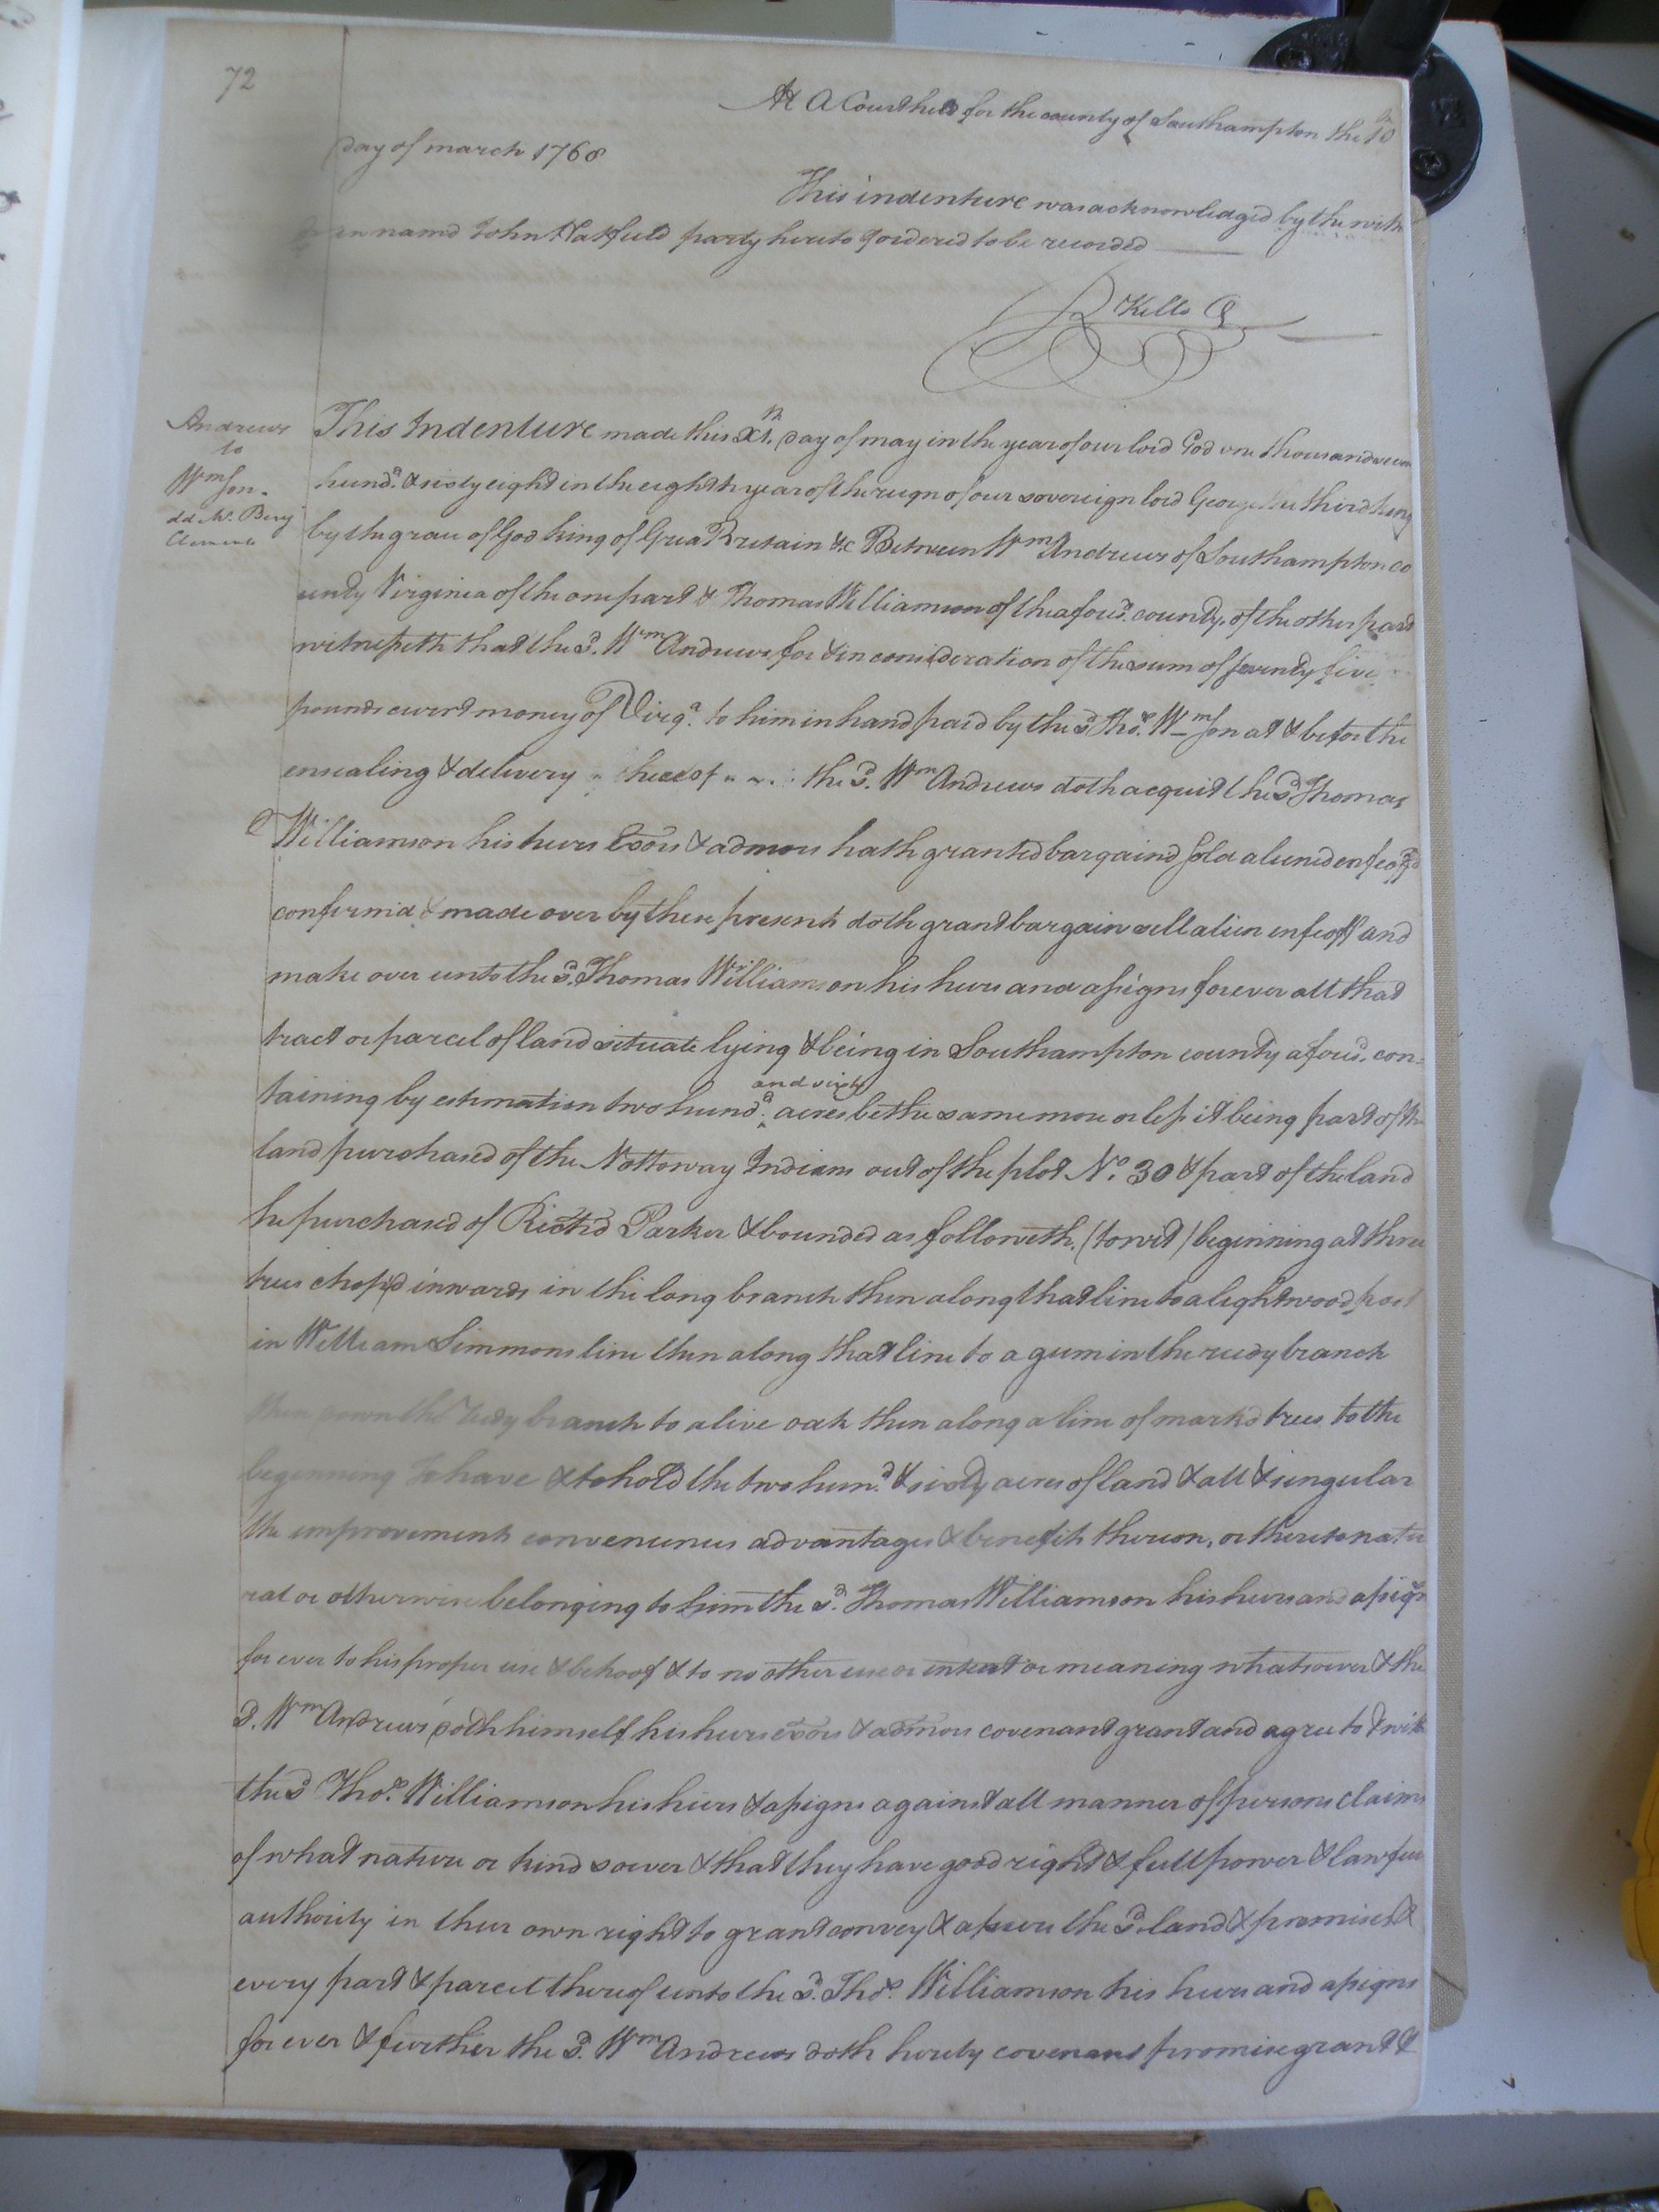 72
At A Court held for the county of Southampton the 10th
day of march 1768
This indenture was acknowledged by the with
in named John Hatfield party hereto & ordered to be recorded
R Kello
Andrews
to
Wmson.
dd Mr. Benj
Clements
This Indenture made this day of may in the year of our lord God one thousand seven
hund.d & sixty eight in the eighth year of the reign of our sovereign lord George the third
by the grace of God king of Great Britain &c Between Wm Andrews of Southampton co
unty Virginia of the one part & Thomas Williamson of the afores.d county of the other part
witnesseth that the s.d Wm Andrews for & in consideration of the sum of seventy five
pounds curr.t money of Virg.a to him in hand paid by the sd Tho.s Wmson at & before the
ensealing & delivery hereof the s.d Wm Andrews doth acquit the sd Thomas
Williamson his heirs Exors & admors hath granted bargaind sold aliened enfeoff'd
confirmed & made over by these present doth grant bargain sell alien enfeoff and
make over unto the s.d Thomas Williamson his heirs and assigns forever all that
tract or parcel of land situate lying & being in Southampton county afores.d con=
taining by estimation two hund.d and sixty acres be the same more or less it being part of the
land purchased of the Nottoway Indians out of the plot No. 30 & part of the land
he purchased of Rich'd Parker & bounded as followeth. (towit) beginning at three
trees chop'd inwards in the long branch then along that line to a lightwood post
in William Simmons line then along that line to a gum in the reedy branch
then down the reedy branch to a live oak then along a line of markd trees to the
beginning To have & to hold the two hun.d & sixty acres of land & all & singular
the improvements conveniences advantages & benefits thereon, or thereto natu
ral or otherwise belonging to him the s.d Thomas Williamson his heirs and assigns
for ever to his proper use & behoof & to no other use or intent or meaning whatsoever & the
s.d Wm Andrews doth himself his heirs exors & admors covenant grant and agree to & with
the sd Tho.s Williamson his heirs & assigns against all manner of persons claims
of what nature or kind soever & that they have good right & full power & lawful
authority in their own right to grant convey & assure the s.d land & premises &
every part & parcel thereof unto the s.d Tho.s Williamson his heirs and assigns
for ever & further the s.d Wm Andrews doth hereby covenant promise grant &